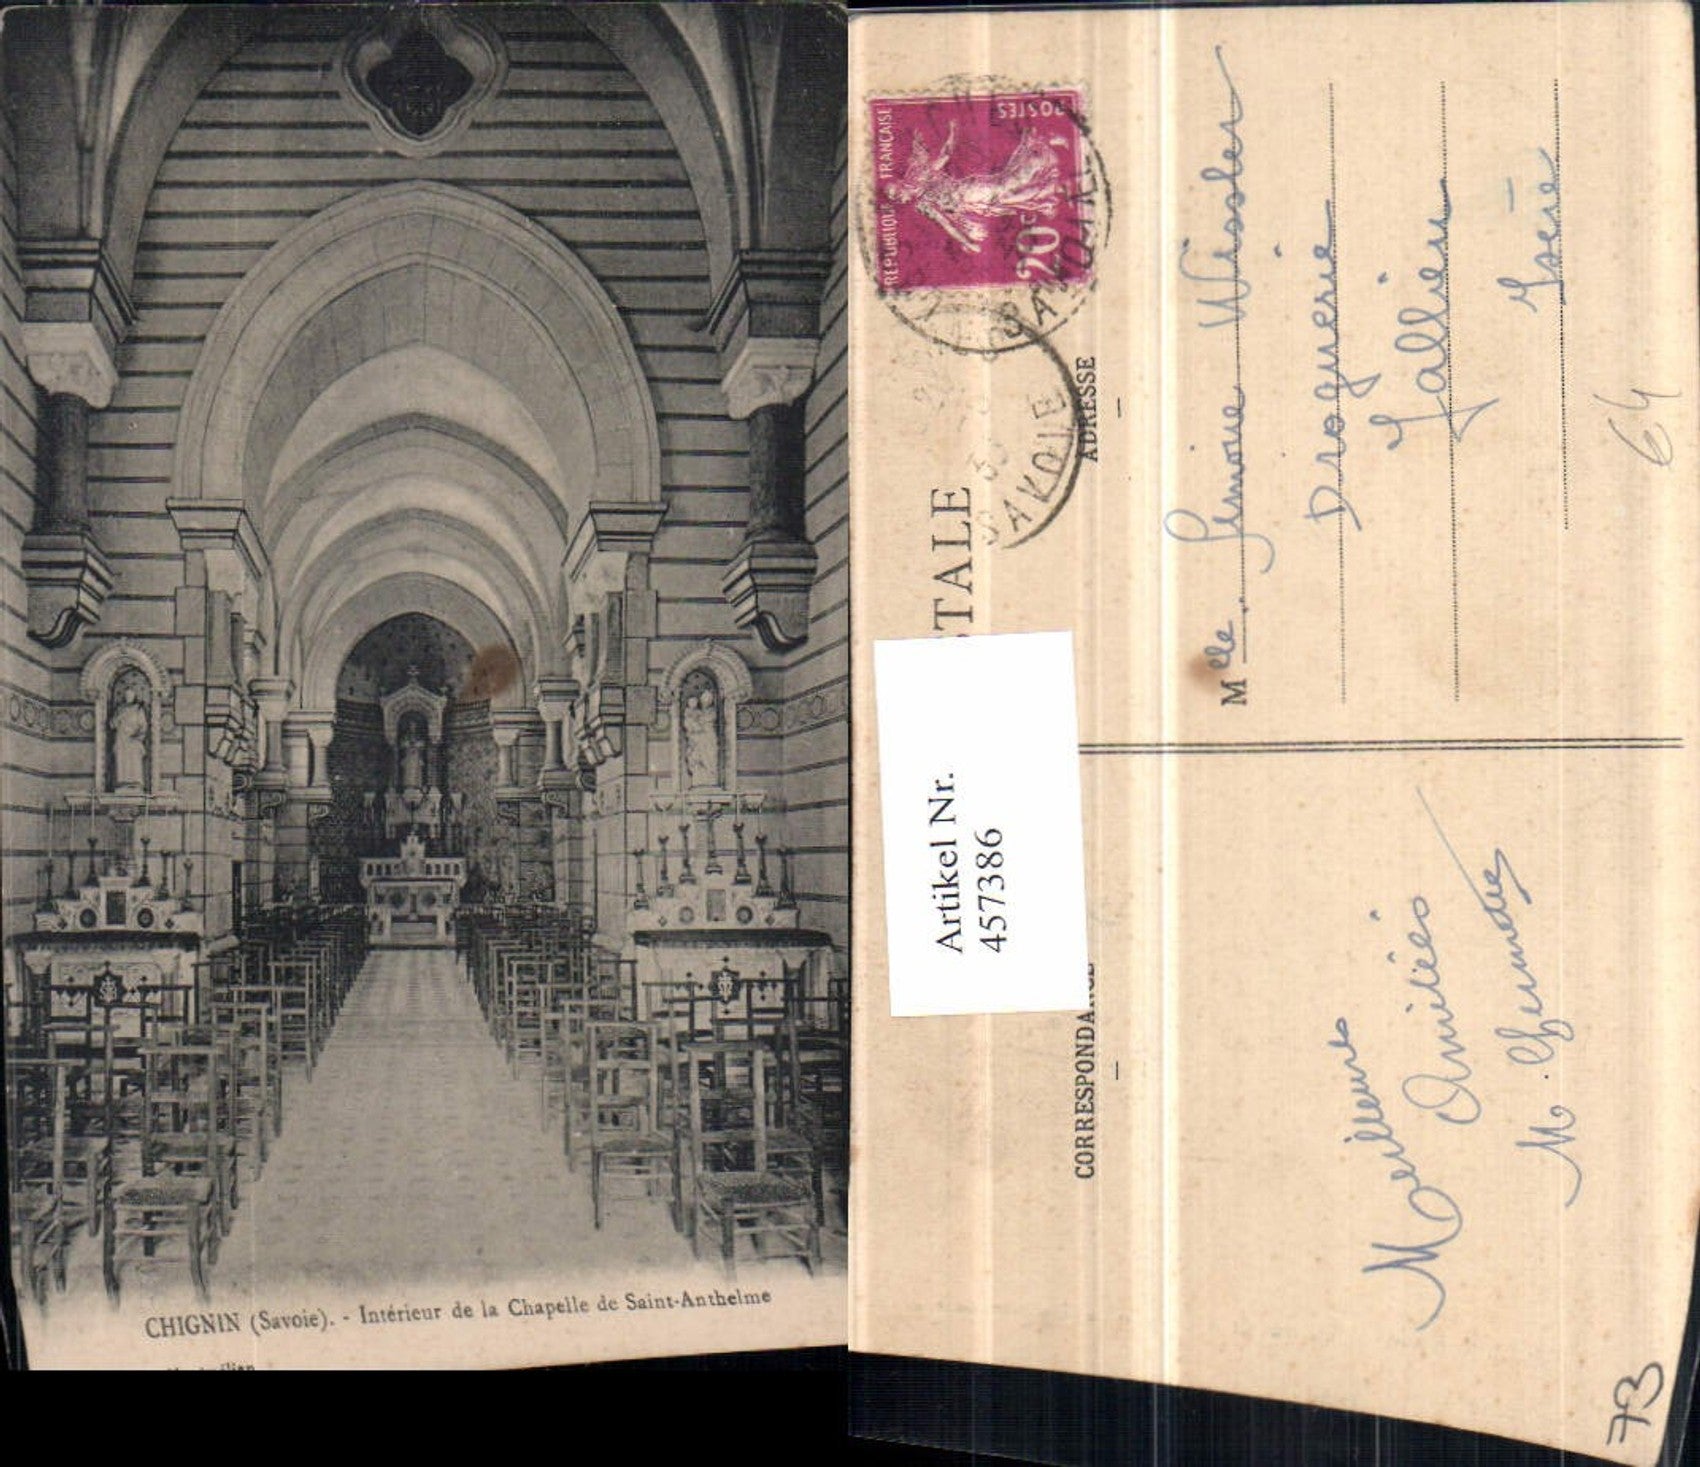 CHIGNIN (Savoie). - Intérieur de la Chapelle de Saint-Anthelme
REPUBLIQUE FRANÇAISE
POSTES
20c
SAVOIE
SAVOIE
TALE
CORRESPONDANCE
ADRESSE
Artikel Nr.
457386
Mlle. Simone Wissler
Droguerie
Jallieu
Isère
Meilleures
Amitiés
M.
64
73